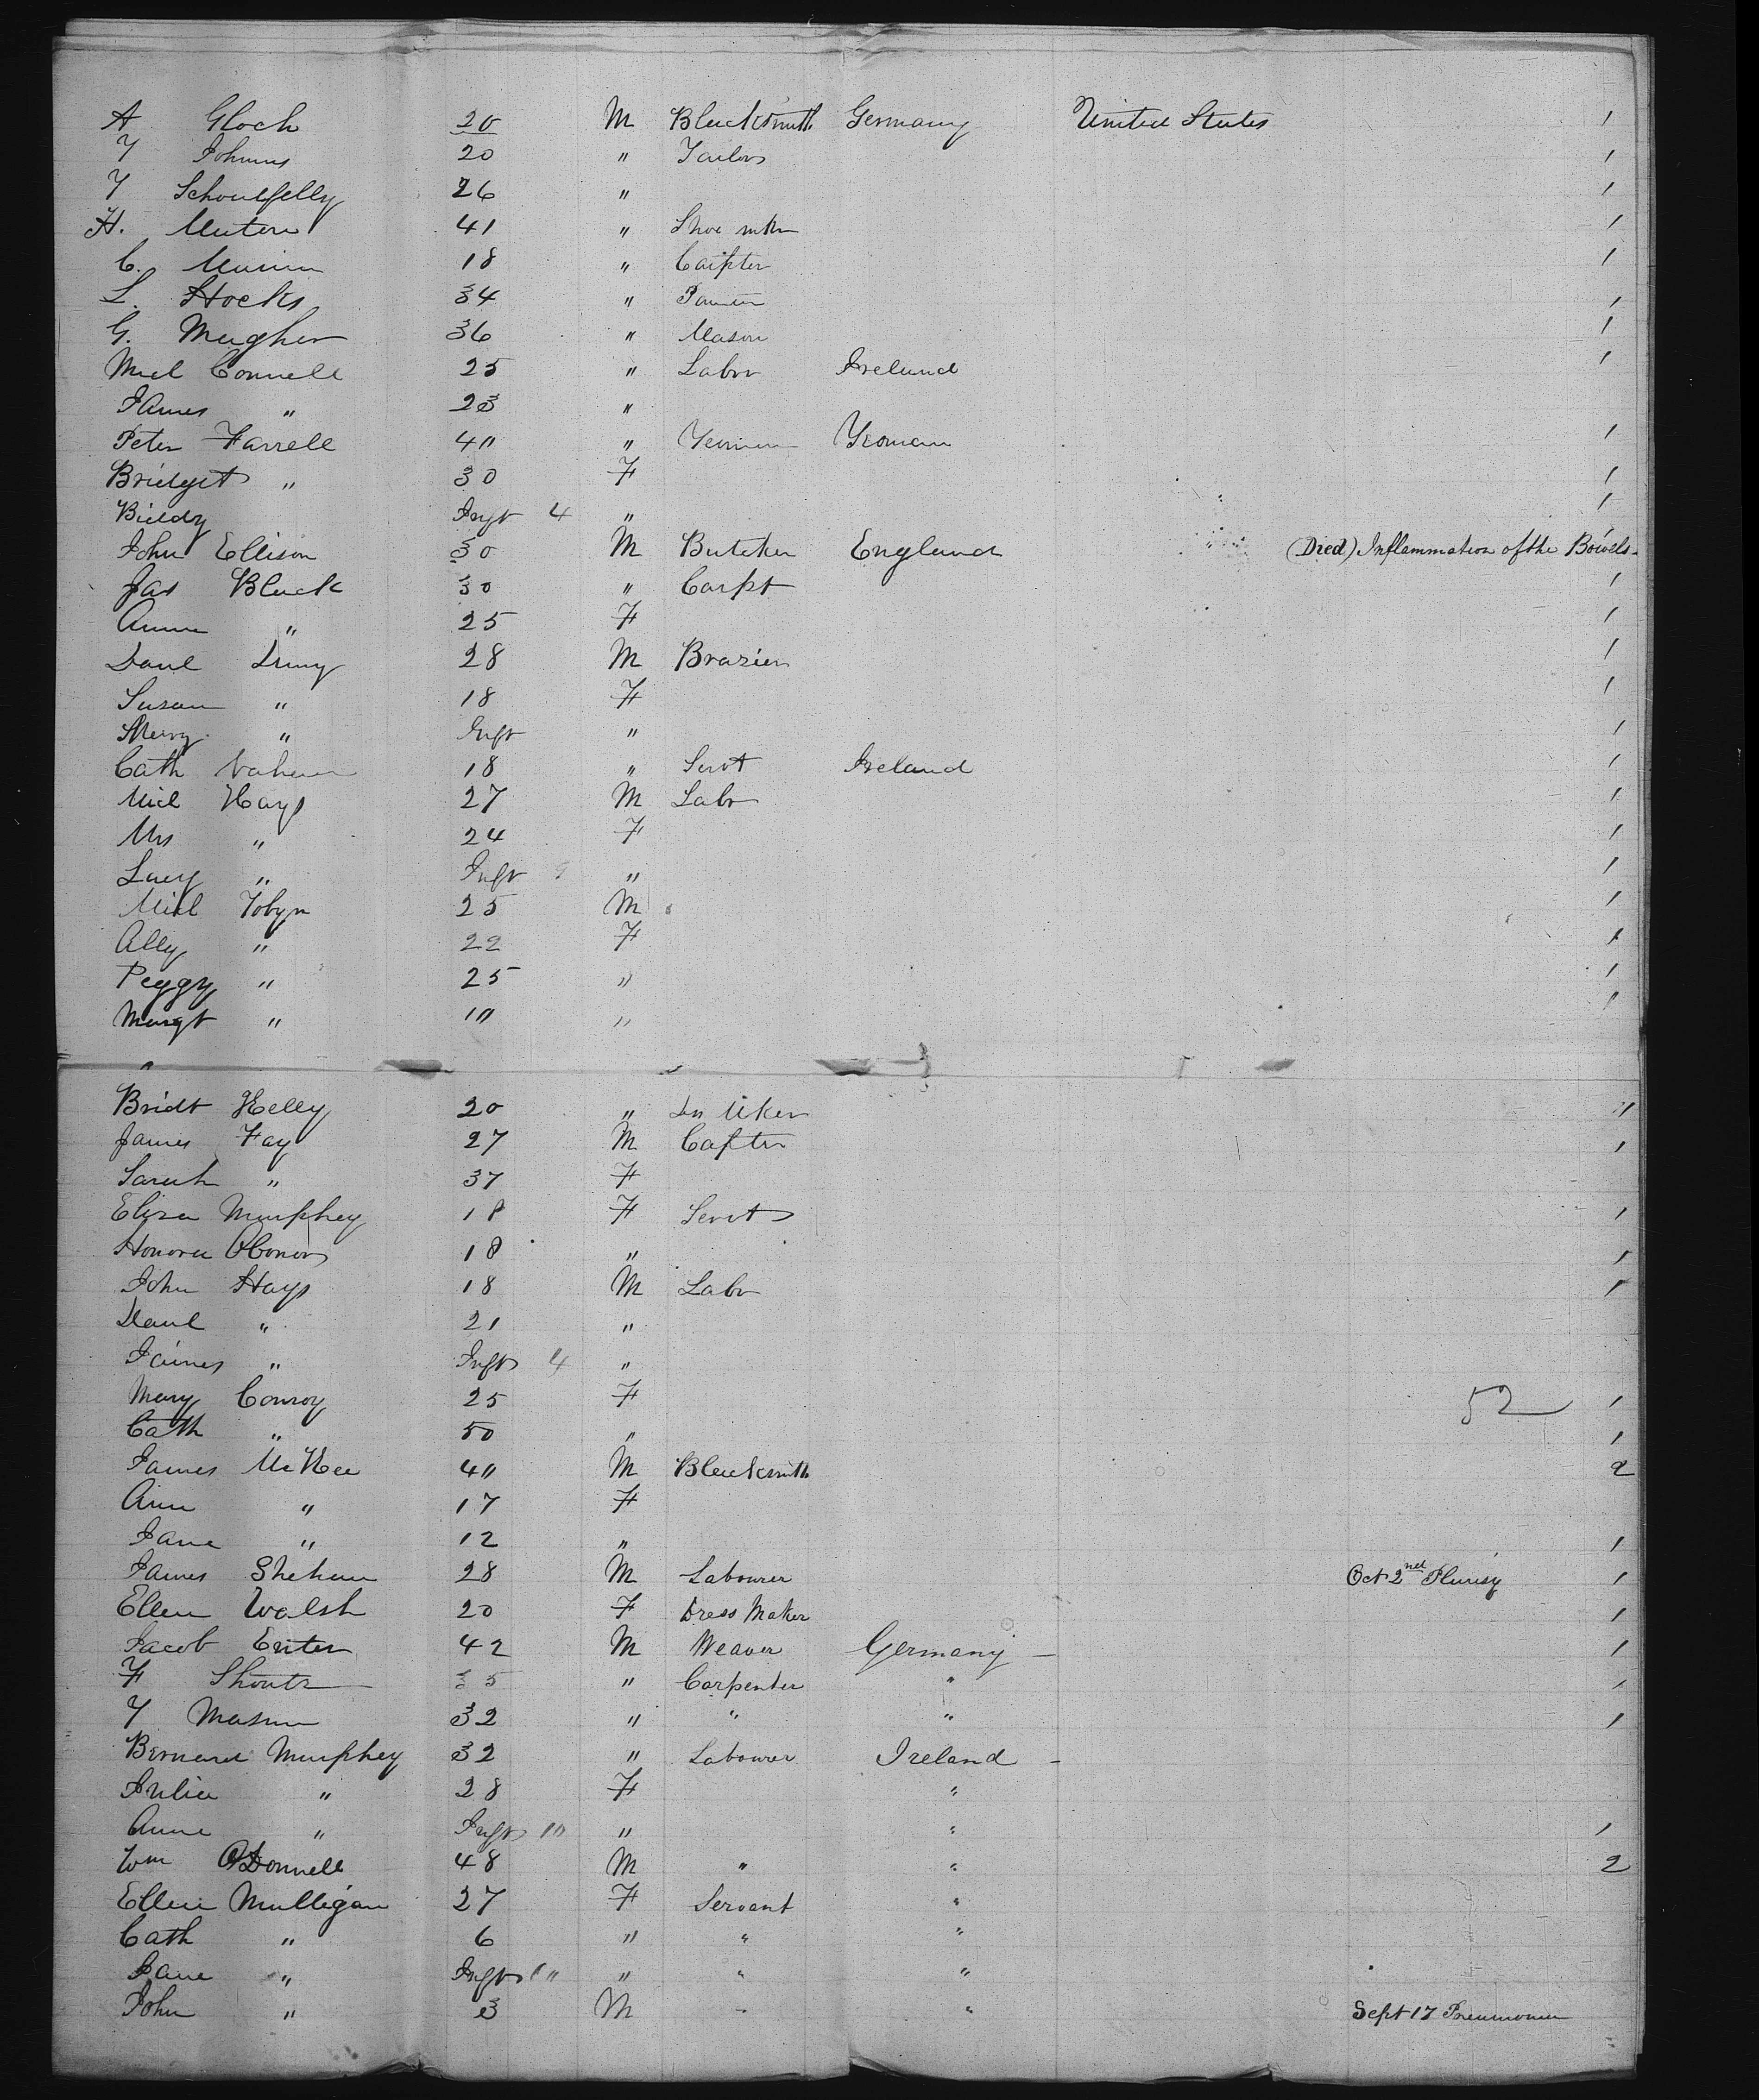 A Gloch 20 M Blacksmith Germany United States 1
J Johnns 20 " Tailor 1
J 26 " 1
H. 41 " Shoe mkr 1
C. 18 " Carpter 1
L. Hocks 34 " Painter 1
G. Mugher 36 " Mason 1
Micl Connell 25 " Labr Ireland 1
James " 23 "
Peter Farrell 40 " Yeoman Yeoman 1
Bridget " 30 F 1
Biddy Inft 4 " 1
John Ellison 30 M Butcher England (Died) Inflammation of the Bowels -
Jas Black 30 " Carpt 1
Anne " 25 F 1
Danl 28 M Brazier 1
Susan " 18 F 1
Mary " Inft " 1
Cath 18 " Servt Ireland 1
Micl Hays 27 M Labr 1
Mrs " 24 F 1
Lucy " Inft 9 " 1
Micl Tobyn 25 M 1
Ally " 22 F 1
Peggy " 25 " 1
Margt " 10 " 1
"
Bridt Kelly 20 " Ds Mker 11
James Fay 27 M Capter 1
Sarah " 37 F
Eliza Murphey 18 F Servt 1
Honora OConor 18 " 1
John Hays 18 M Labr 1
Danl " 21 "
James " Inft 4 "
Mary Conroy 25 F 52 1
Cath " 50 " 1
James McKee 40 M Blacksmith 2
Ann " 17 F
Jane " 12 " 1
James Shehan 28 M Labourer Oct 2nd Plurisy 1
Ellen Walsh 20 F Dress Maker 1
Jacob Enter 42 M Weaver Germany - 1
F Shouts 35 " Carpenter " 1
J Mason 32 " " " 1
Bernard Murphey 32 " Labourer Ireland -
Julia " 28 F "
Anne " Inft 10 " " 1
Wm O'Donnell 48 M " " 2
Ellen Mulligan 27 F Servant "
Cath " 6 " " "
Jane " Inft 10 " " "
John " 3 M " " Sept 17 Pneumonia